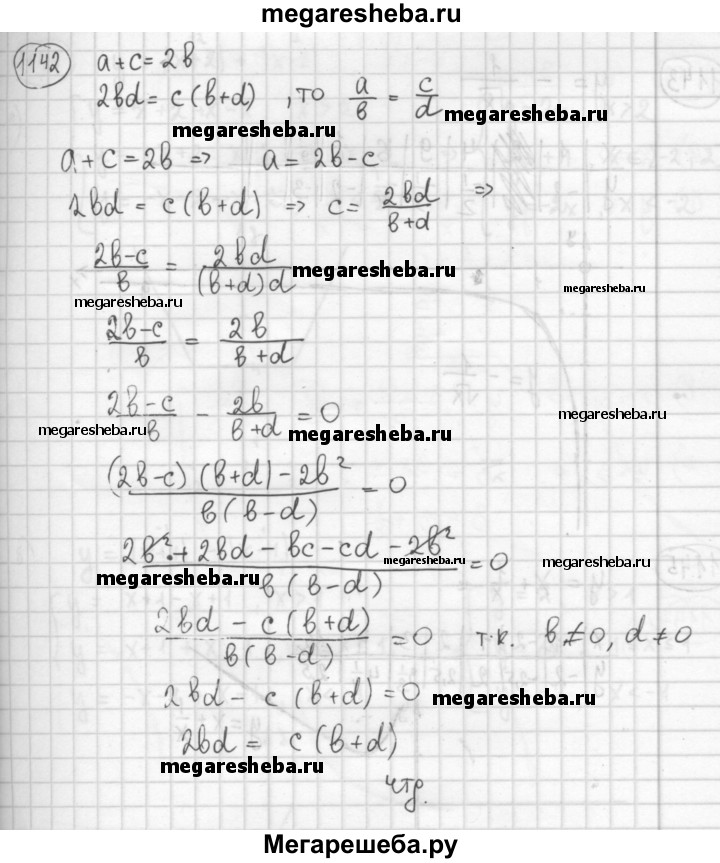 megaresheba.ru
1142 a+c=2в
2вd = c(в+d) , то a/в = c/d
megaresheba.ru megaresheba.ru
a+c=2в => a = 2в-c
2вd = c(в+d) => c = 2вd/(в+d) =>
(2в-c)/в = 2вd/((в+d)d) megaresheba.ru megaresheba.ru
megaresheba.ru
(2в-c)/в = 2в/(в+d)
(2в-c)/в - 2в/(в+d) = 0
megaresheba.ru megaresheba.ru
((2в-c)(в+d)-2в²)/(в(в-d)) = 0
(2в²+2вd-вc-cd-2в²)/(в(в-d)) = 0
megaresheba.ru megaresheba.ru megaresheba.ru
(2вd-c(в+d))/(в(в-d)) = 0 т.к. в≠0, d≠0
2вd - c(в+d)=0 megaresheba.ru
2вd = c(в+d)
megaresheba.ru
чтд.
Мегарешеба.ру